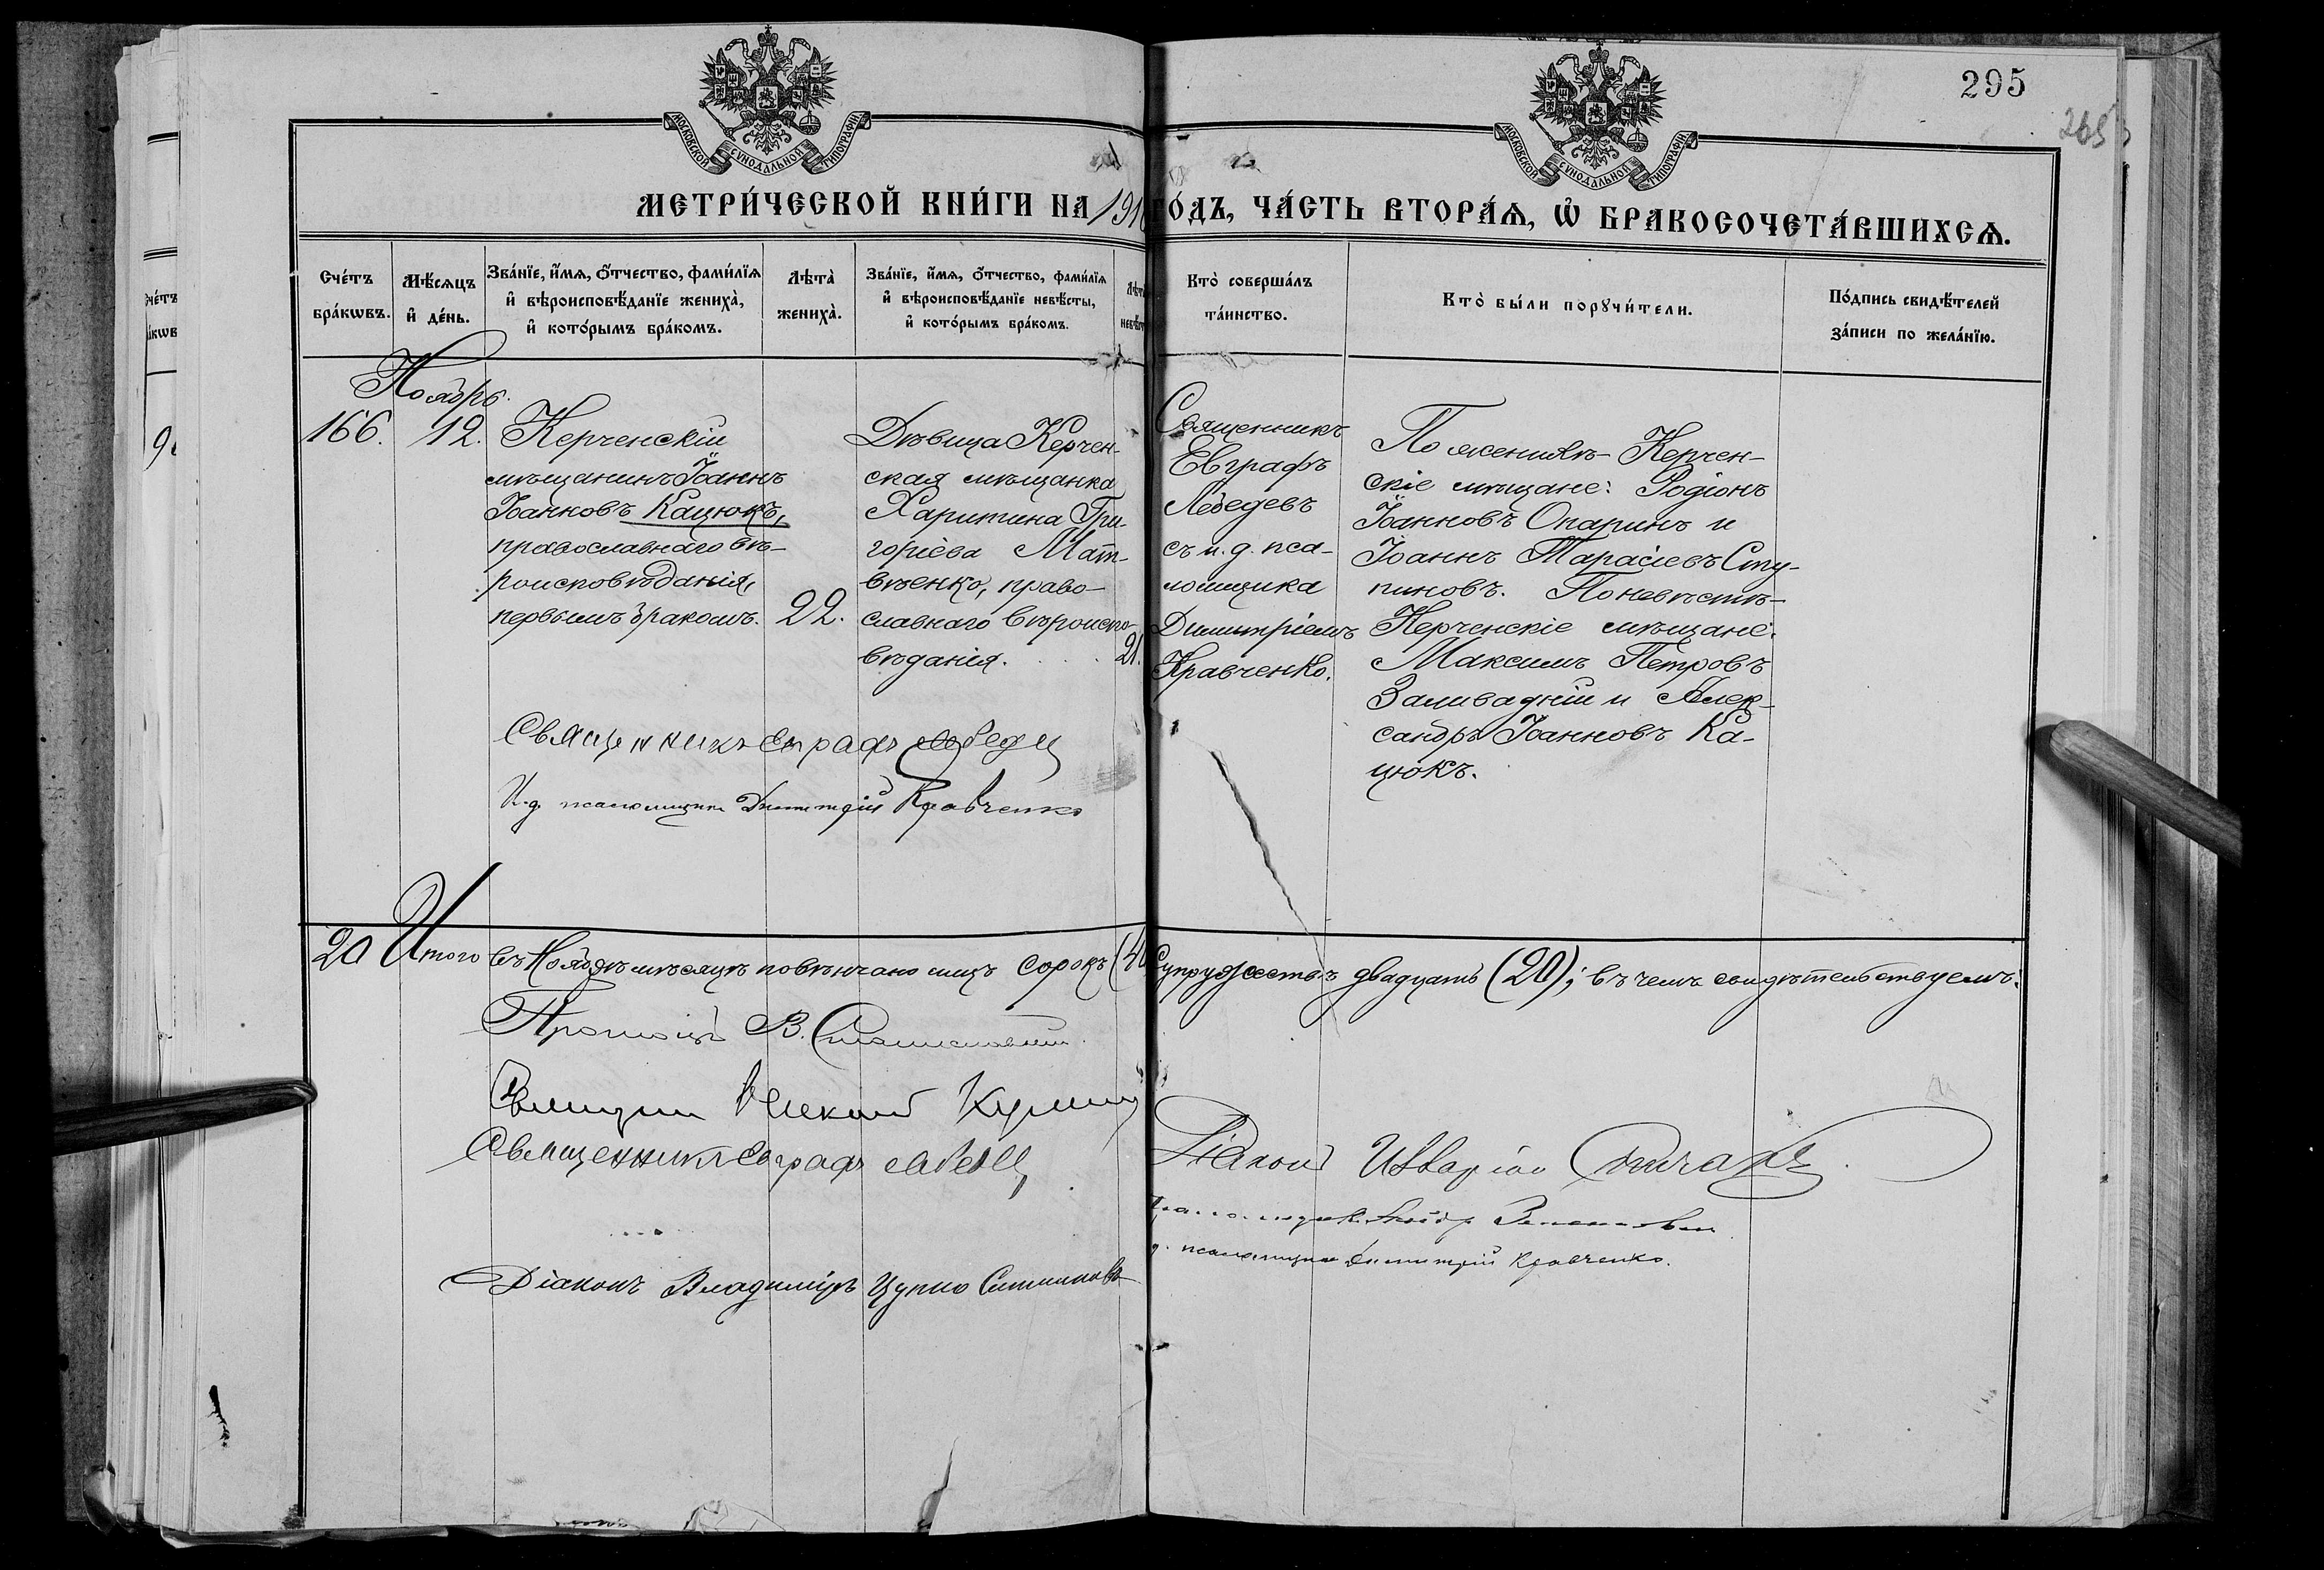 МОСКОВСКОЙ СѴНОДАЛЬНОЙ ТИПОГРАФІИ
МОСКОВСКОЙ СѴНОДАЛЬНОЙ ТИПОГРАФІИ
295
265
МЕТРИ́ЧЕСКОЙ КНИ́ГИ НА 1910 ГО́ДЪ, ЧА́СТЬ ВТОРА́Ѧ, Ѡ БРАКОСОЧЕТА́ВШИХСѦ.
Сче́тъ
бра́кѡвъ.
Мѣ́сѧцъ
и҆ де́нь.
Зва́нїе, и҆́мѧ, о҆́тчество, фами́лїѧ
и҆ вѣроисповѣ́данїе жениха̀,
и҆ кото́рымъ бра́комъ.
Лѣта̀
жениха̀.
Зва́нїе, и҆́мѧ, о҆́тчество, фами́лїѧ
и҆ вѣроисповѣ́данїе невѣ́сты,
и҆ кото́рымъ бра́комъ.
Кто̀ соверша́лъ
та́инство.
Кто̀ бы́ли порꙋчи́тели.
По́дпись свидѣ́телей
за́писи по жела́нїю.
Ноябрь.
166.
12.
Керченскій
мѣщанинъ Іоаннъ
Іоанновъ Кацюкъ,
православнаго вѣ-
роисповѣданія,
первымъ бракомъ.
22.
Дѣвица Керчен-
ская мѣщанка
Харитина Гри-
горіева Мат-
вѣенко, право-
славнаго вѣроиспо-
вѣданія.
21.
Священникъ
Евграфъ
Лебедевъ
съ и. д. пса-
ломщика
Димитріемъ
Кравченко.
По женихѣ - Керчен-
скіе мѣщане: Родіонъ
Іоанновъ Опаринъ и
Іоаннъ Тарасіевъ Сту-
пиновъ. По невѣстѣ -
Керченскіе мѣщане:
Максимъ Петровъ
Заливадній и Алек-
сандръ Іоанновъ Ка-
цюкъ.
Священникъ Евграфъ Лебедев
И. д. псаломщика Димитрій Кравченко
20 Итого въ Ноябрѣ мѣсяцѣ повѣнчано лицъ сорокъ (40 Супружествъ двадцать (20); въ чемъ свидѣтельствуемъ:
В.
Священник Алексій
Священникъ Евграфъ Лебедев
Діаконъ Владиміръ Цупко
Діаконъ
псаломщика Димитрій Кравченко.